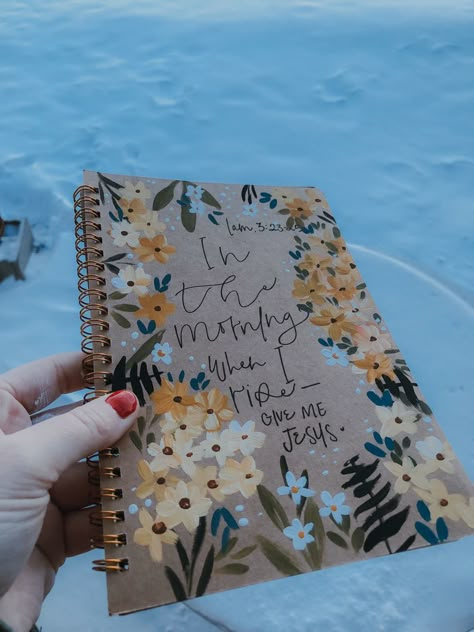 lam. 3:23-24
In
the
morning
when I
rise—
GIVE ME
JESUS.